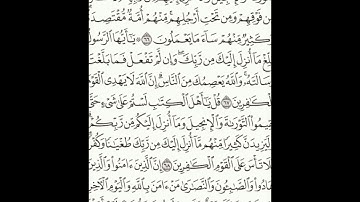 مِن فَوْقِهِمْ وَمِن تَحْتِ أَرْجُلِهِم مِّنْهُمْ أُمَّةٌ مُّقْتَصِدَةٌ
وَكَثِيرٌ مِّنْهُمْ سَآءَ مَا يَعْمَلُونَ ٦٦ يَٰٓأَيُّهَا ٱلرَّسُولُ
بَلِّغْ مَآ أُنزِلَ إِلَيْكَ مِن رَّبِّكَ وَإِن لَّمْ تَفْعَلْ فَمَا بَلَّغْتَ
رِسَالَتَهُۥ وَٱللَّهُ يَعْصِمُكَ مِنَ ٱلنَّاسِ إِنَّ ٱللَّهَ لَا يَهْدِى ٱلْقَوْمَ
ٱلْكَٰفِرِينَ ٦٧ قُلْ يَٰٓأَهْلَ ٱلْكِتَٰبِ لَسْتُمْ عَلَىٰ شَىْءٍ حَتَّىٰ
تُقِيمُوا۟ ٱلتَّوْرَىٰةَ وَٱلْإِنجِيلَ وَمَآ أُنزِلَ إِلَيْكُم مِّن رَّبِّكُمْ
وَلَيَزِيدَنَّ كَثِيرًا مِّنْهُم مَّآ أُنزِلَ إِلَيْكَ مِن رَّبِّكَ طُغْيَٰنًا وَكُفْرًا
فَلَا تَأْسَ عَلَى ٱلْقَوْمِ ٱلْكَٰفِرِينَ ٦٨ إِنَّ ٱلَّذِينَ ءَامَنُوا۟ وَٱلَّذِينَ
هَادُوا۟ وَٱلصَّٰبِـُٔونَ وَٱلنَّصَٰرَىٰ مَنْ ءَامَنَ بِٱللَّهِ وَٱلْيَوْمِ ٱلْءَاخِرِ